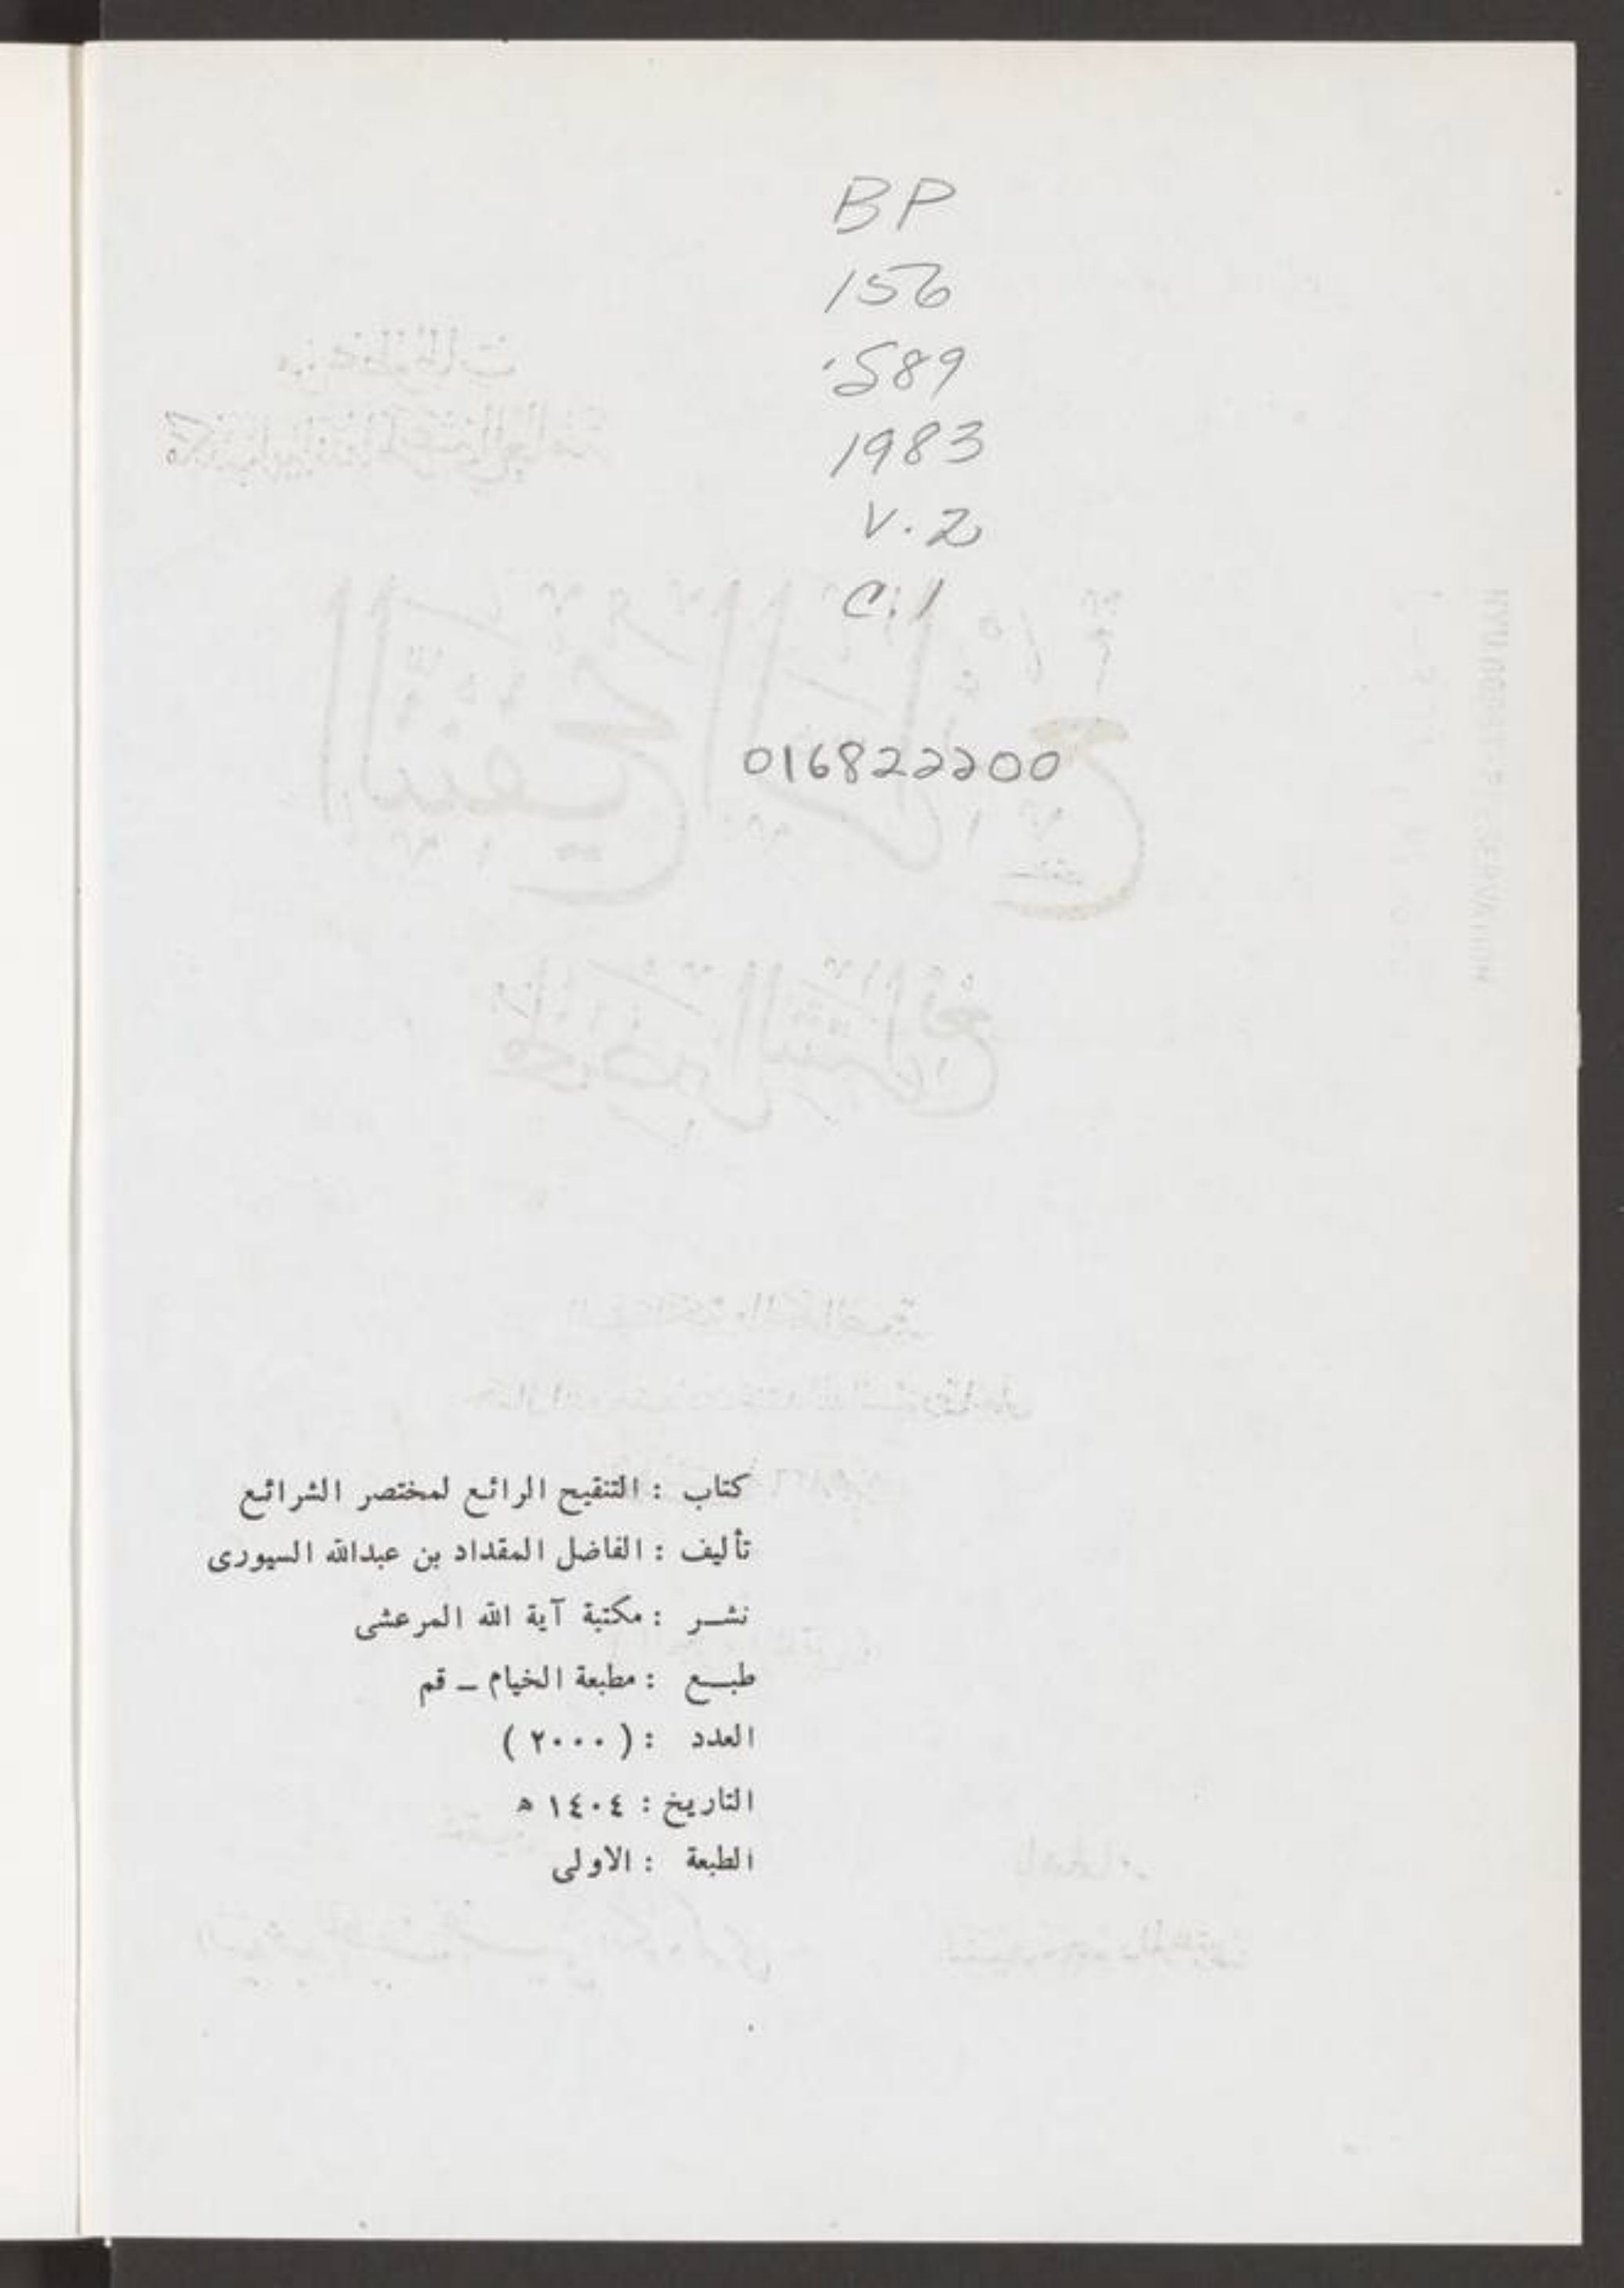 BP
156
.S89
1983
V.2
C.1
016822200
كتاب : التنقيح الرائع لمختصر الشرائع
تأليف : الفاضل المقداد بن عبدالله السيورى
نشـر : مكتبة آية الله المرعشى
طبـع : مطبعة الخيام ــ قم
العدد : ( ٢٠٠٠ )
التاريخ : ١٤٠٤ ه
الطبعة : الاولى